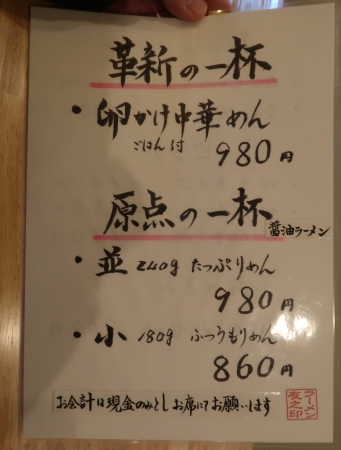 革新の一杯
・卵かけ中華めん
ごはん付 980円
原点の一杯
醤油ラーメン
・並 240g たっぷりめん
980円
・小 180g ふつうもりめん
860円
お会計は現金のみとし お席にてお願いします
ラーメン
友之印